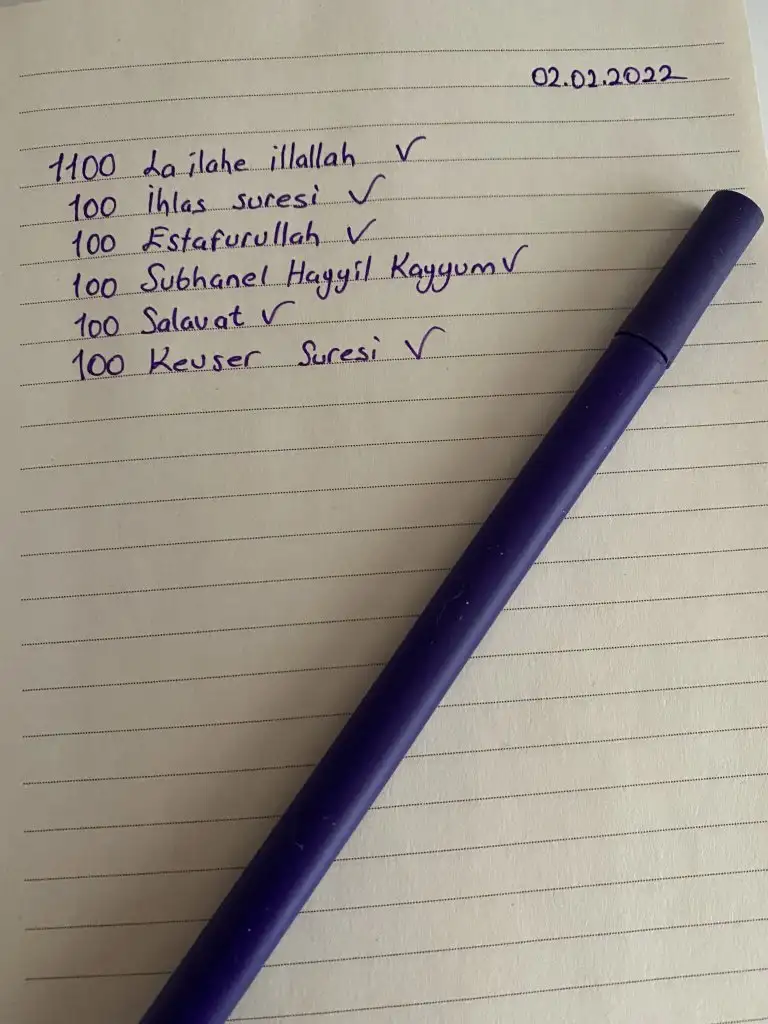 02.02.2022
1100 La ilahe illallah ✓
100 İhlas suresi ✓
100 Estafurullah ✓
100 Subhanel Hayyil Kayyum ✓
100 Salavat ✓
100 Kevser Suresi ✓